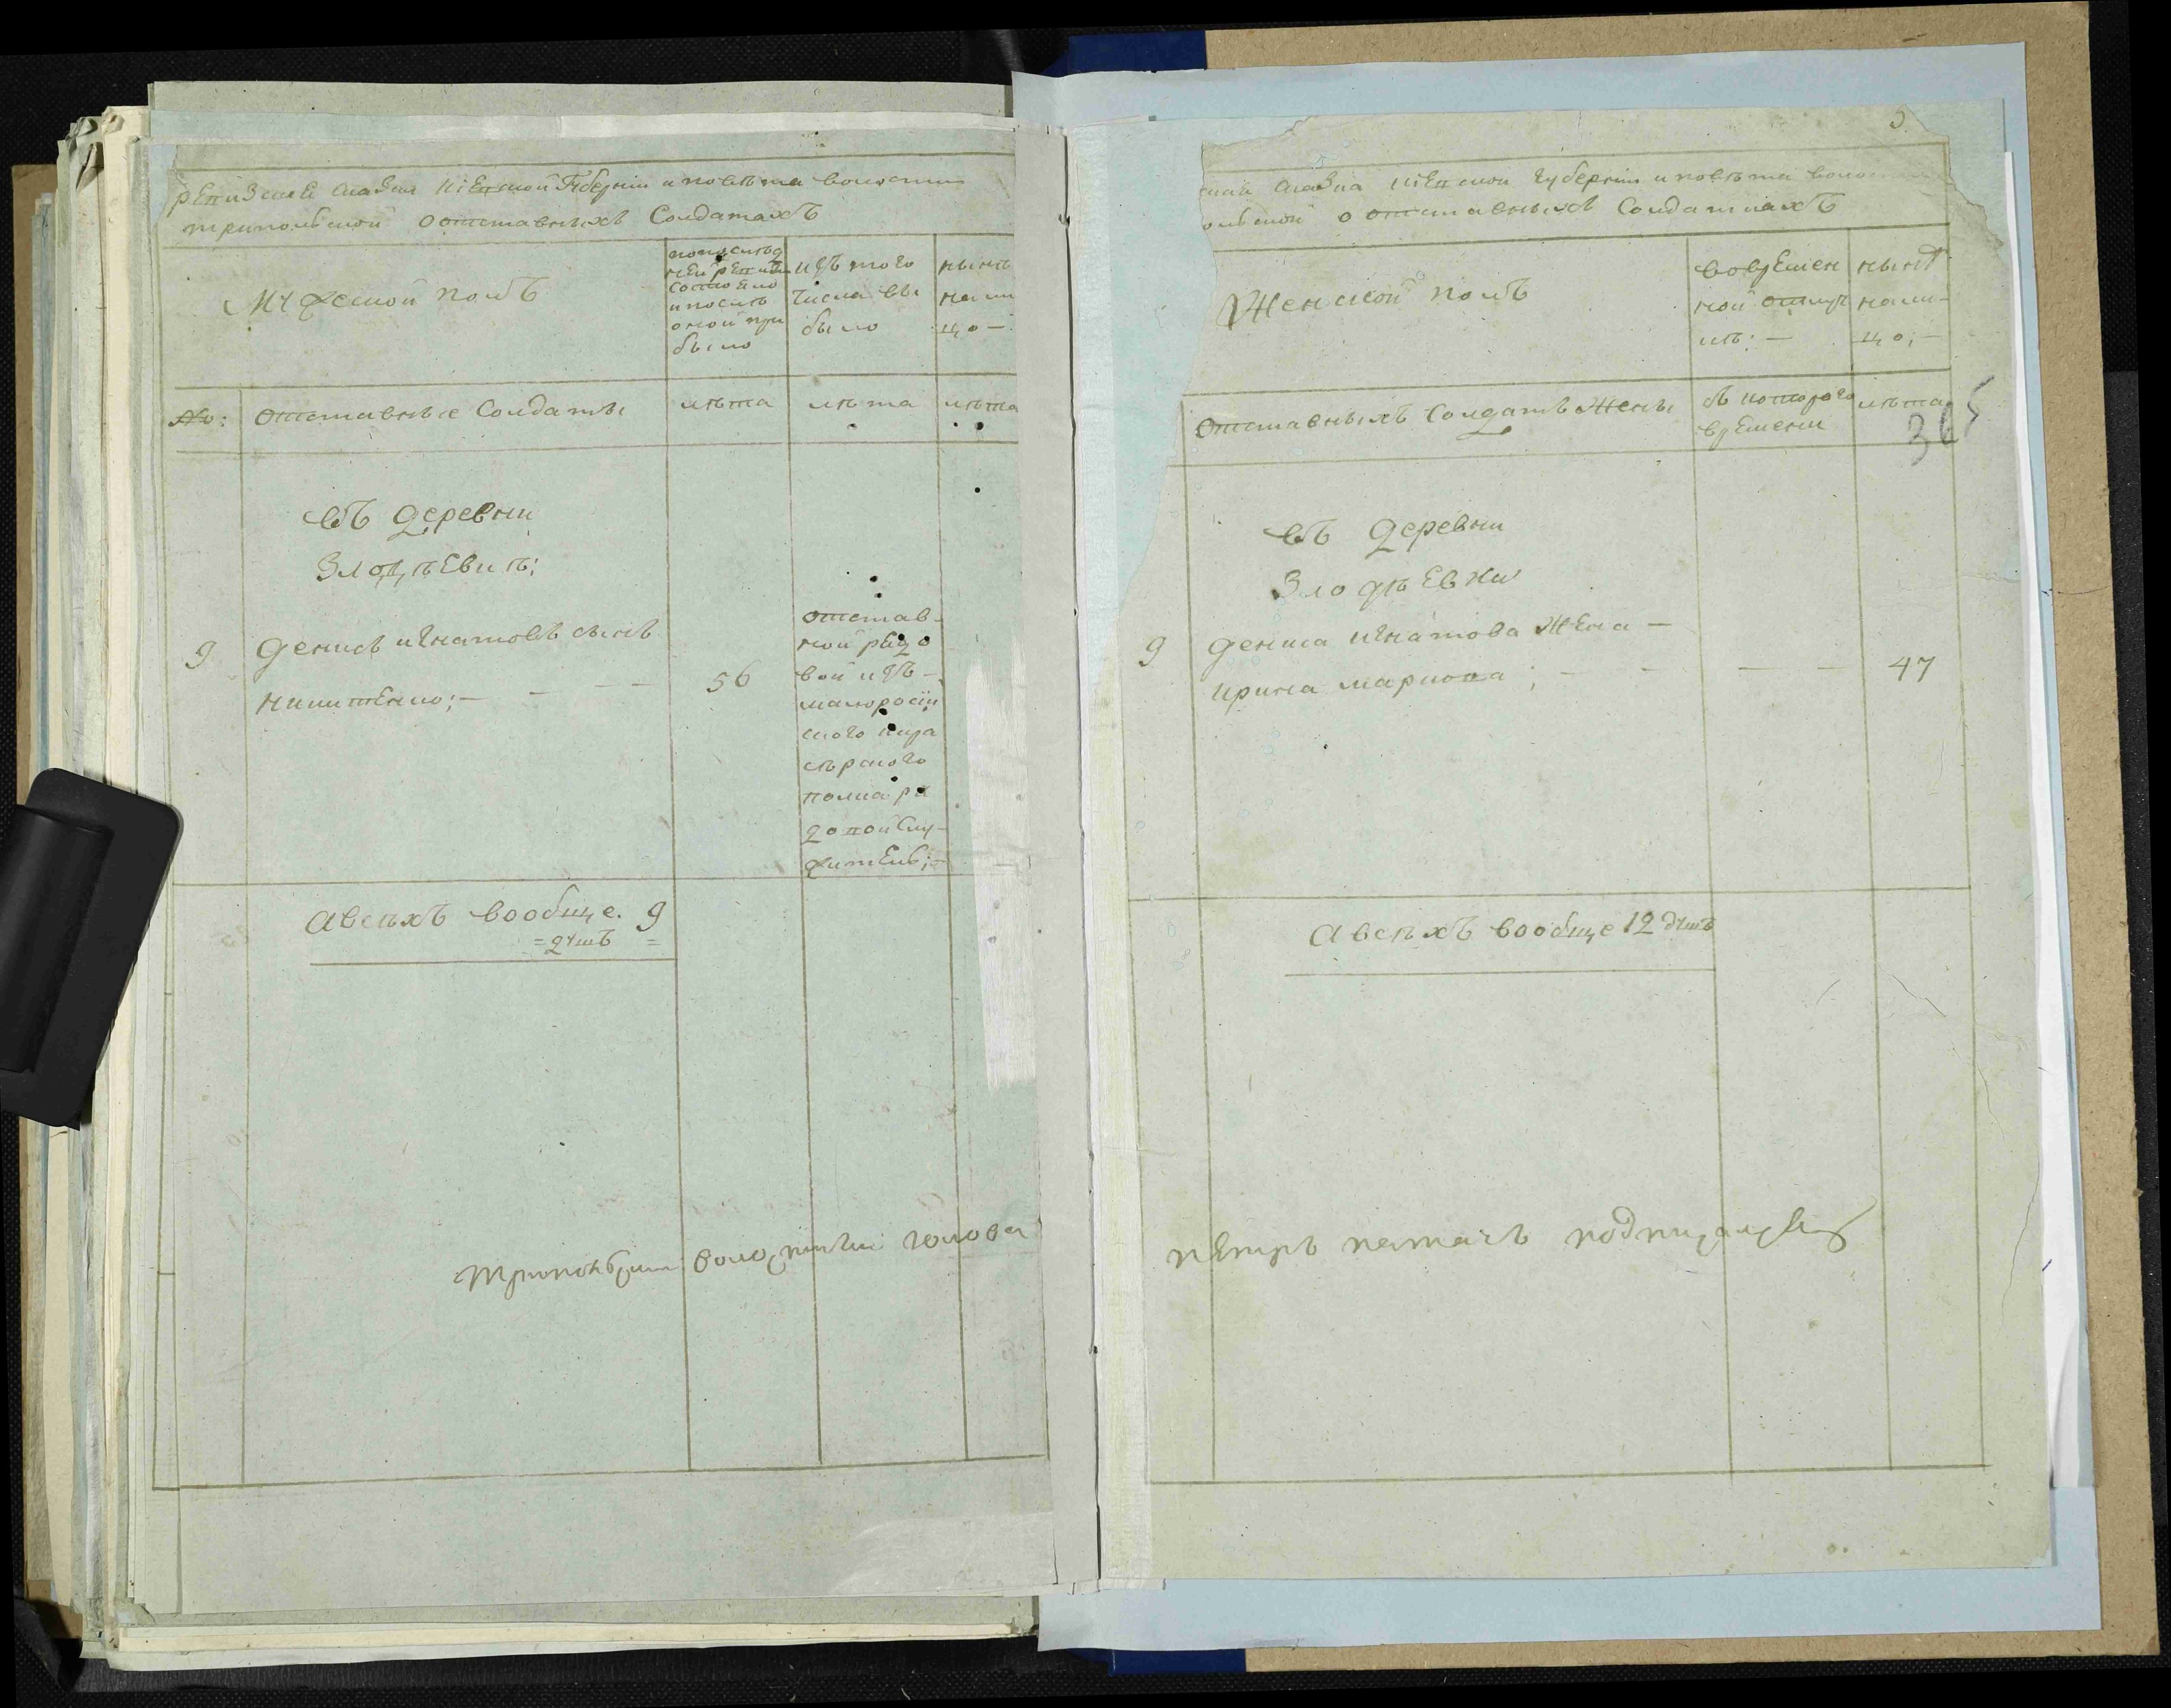 ревизская сказка кіевской губерніи и повѣта волости
трипольской о отставныхъ Солдатахъ
Мужеской полъ
попослѣд
ней ревизіи
состояло
и послѣ
оной при
было
изъ того
числа вы
было
нынѣ
нали
цо —
№:
Отставные Солдаты
лѣта
лѣта
лѣта
въ деревни
Злодѣевкѣ:
9
денисъ игнатовъ сынъ
никитенко; — — — —
56
отстав-
ной рядо
вой изъ —
малоросій
ского кира
сѣрского
полка ря
довой слу-
житель; —
а всѣхъ вообще. 9
= душъ =
Трипольскии волостнои голова
9.
ская сказка кіевской губерніи и повѣта волости
ольской о отставныхъ Солдатахъ
Женской полъ
во времен
ной отлуч
кѣ: —
нынѣ
нали-
цо; —
Отставныхъ солдатъ жены
съ которого
времени
лѣта
365
въ деревни
Злодѣевки
9
дениса игнатова жена —
ирина маркова; — — — —
47
а всѣхъ вообще 12 душъ
петръ паточъ подписался